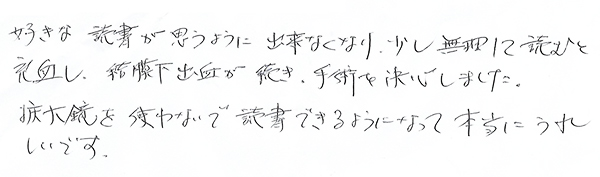 好きな 読書が思うように 出来なくなり、少し無理して読むと
充血し、結膜下出血が 続き、手術を決心しました。
拡大鏡を 使わないで 読書できるようになって 本当に うれ
しいです。